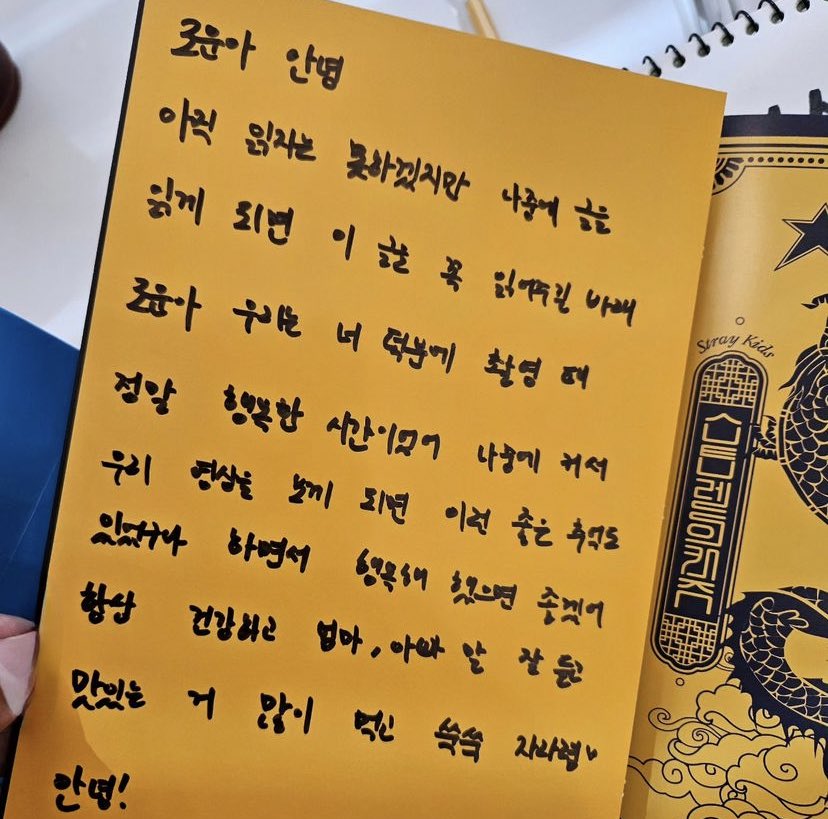 로운아 안녕
아직 읽지는 못하겠지만 나중에 글을
읽게 되면 이 글을 꼭 읽어주길 바래
로운아 우리는 너 덕분에 촬영 때
정말 행복한 시간이었어 나중에 커서
우리 영상을 보게 되면 이런 좋은 추억도
있었구나 하면서 행복해 했으면 좋겠어
항상 건강하고 엄마, 아빠 말 잘 듣고
맛있는 거 많이 먹고 쑥쑥 자라렴♥
안녕!
Stray Kids
스트레이키즈